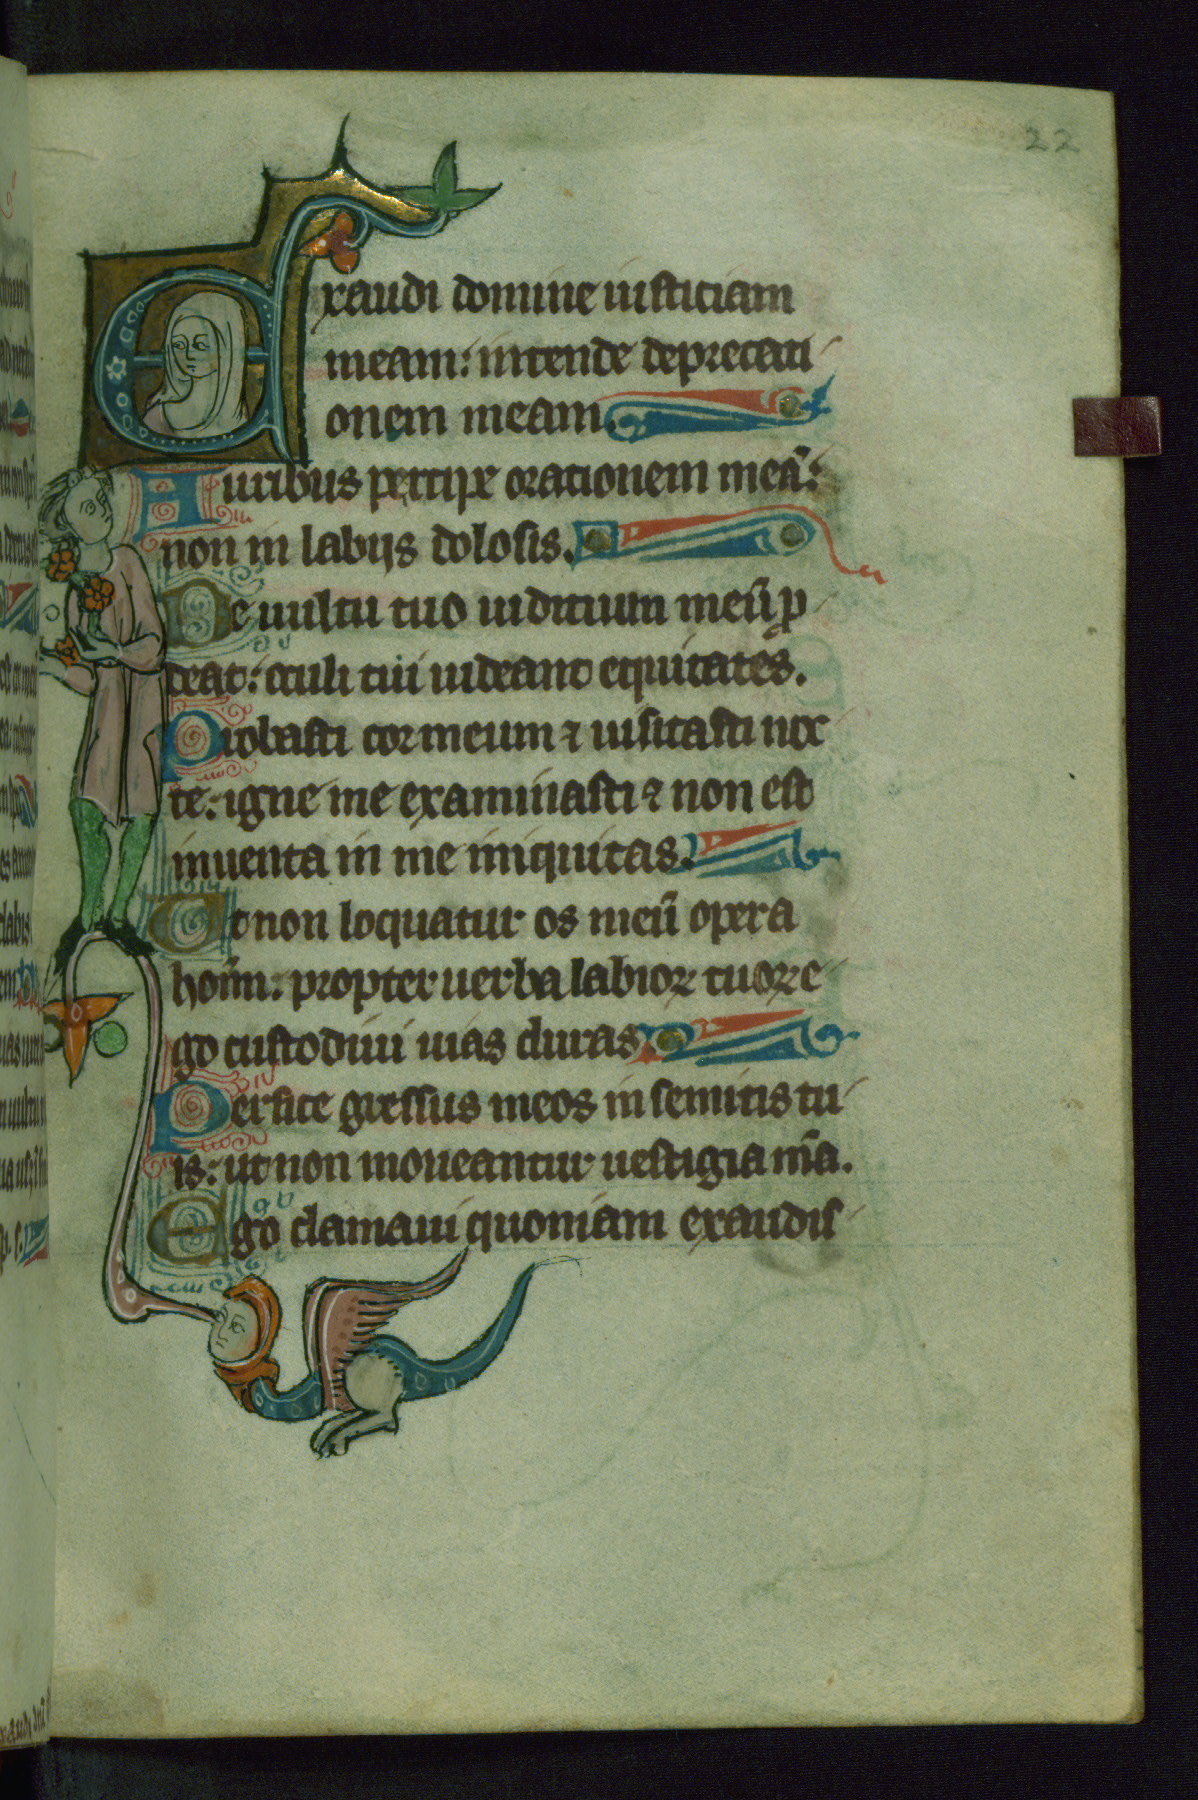 22
Exaudi domine iusticiam
meam: intende deprecati
onem meam.
Auribus percipe orationem meā:
non in labijs dolosis.
De uultu tuo iudicium meū p̄
deat: oculi tui uideant equitates.
Probasti cor meum ⁊ uisitasti noc
te: igne me examinasti ⁊ non est
inuenta in me iniquitas.
Ut non loquatur os meū opera
hoīm: propter uerba labioꝝ tuoꝝ e
go custodiui uias duras
Perfice gressus meos in semitis tu
is: ut non moueantur uestigia m̄a.
Ego clamaui quoniam exaudis